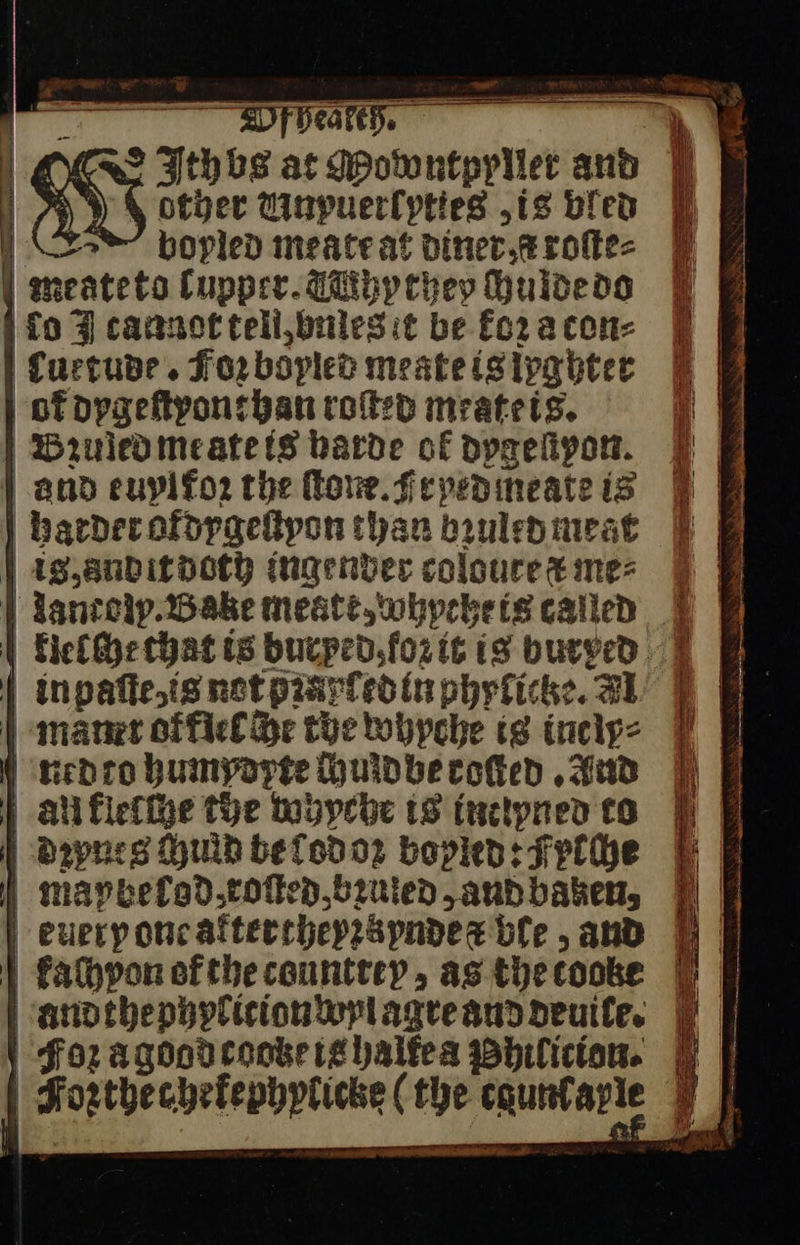 Of healeth.
Ith vs at Mowntpyller and
other Unyuersyties, is vsed
boyled meate at diner, & roste-
meate to supper. Why they shulde do
so I cannot tell, vnles it be for a con-
suetude. For boyled meate is lyghter
of dygestyon than rosted meate is.
Bruled meate is harde of dygestyon.
and euyl for the stone. Fryed meate is
harder of dygestyon than bruled meat
is, and it doth ingender coloure & me-
lancoly. Bake meate, whyche is called
flesshe that is buryed, for it is buryed
in paste, is not praysed in physicke. Al
maner of flesshe the whyche is inely-
ned to humydyte shuld be rosted. And
all flesshe the whyche is inclyned to
drynes shuld be sod or boyled: Fysshe
may be sod, rosted, bruled, and baken,
euery one after they: kynde & vse, and
fashyon of the countrey, as the cooke
and the physicion wyl agre and deuise.
For a good cooke is halfe a Phisicion.
For the chefe physicke (the counsayle
of